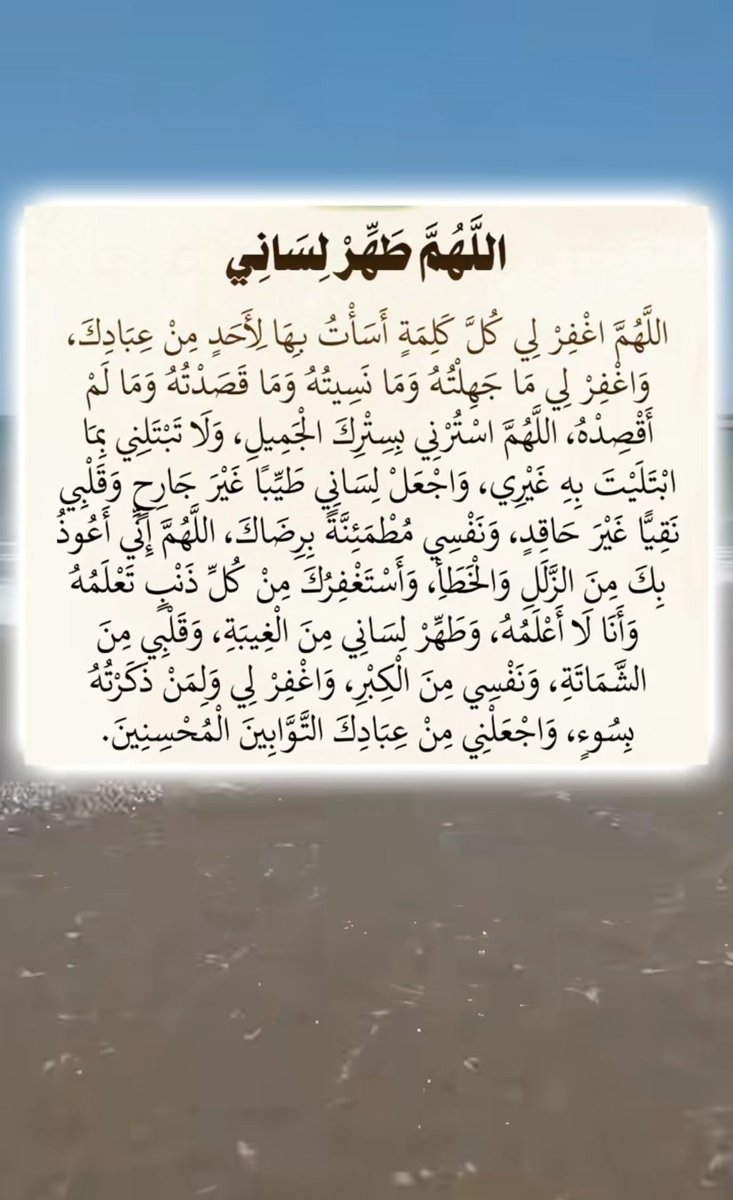 اللَّهُمَّ طَهِّرْ لِسَانِي
اللَّهُمَّ اغْفِرْ لِي كُلَّ كَلِمَةٍ أَسَأْتُ بِهَا لِأَحَدٍ مِنْ عِبَادِكَ،
وَاغْفِرْ لِي مَا جَهِلْتُهُ وَمَا نَسِيتُهُ وَمَا قَصَدْتُهُ وَمَا لَمْ
أَقْصِدْهُ، اللَّهُمَّ اسْتُرْنِي بِسِتْرِكَ الْجَمِيلِ، وَلَا تَبْتَلِنِي بِمَا
ابْتَلَيْتَ بِهِ غَيْرِي، وَاجْعَلْ لِسَانِي طَيِّبًا غَيْرَ جَارِحٍ وَقَلْبِي
نَقِيًّا غَيْرَ حَاقِدٍ، وَنَفْسِي مُطْمَئِنَّةً بِرِضَاكَ، اللَّهُمَّ إِنِّي أَعُوذُ
بِكَ مِنَ الزَّلَلِ وَالْخَطَأِ، وَأَسْتَغْفِرُكَ مِنْ كُلِّ ذَنْبٍ تَعْلَمُهُ
وَأَنَا لَا أَعْلَمُهُ، وَطَهِّرْ لِسَانِي مِنَ الْغِيبَةِ، وَقَلْبِي مِنَ
الشَّمَاتَةِ، وَنَفْسِي مِنَ الْكِبْرِ، وَاغْفِرْ لِي وَلِمَنْ ذَكَرْتُهُ
بِسُوءٍ، وَاجْعَلْنِي مِنْ عِبَادِكَ التَّوَّابِينَ الْمُحْسِنِينَ.